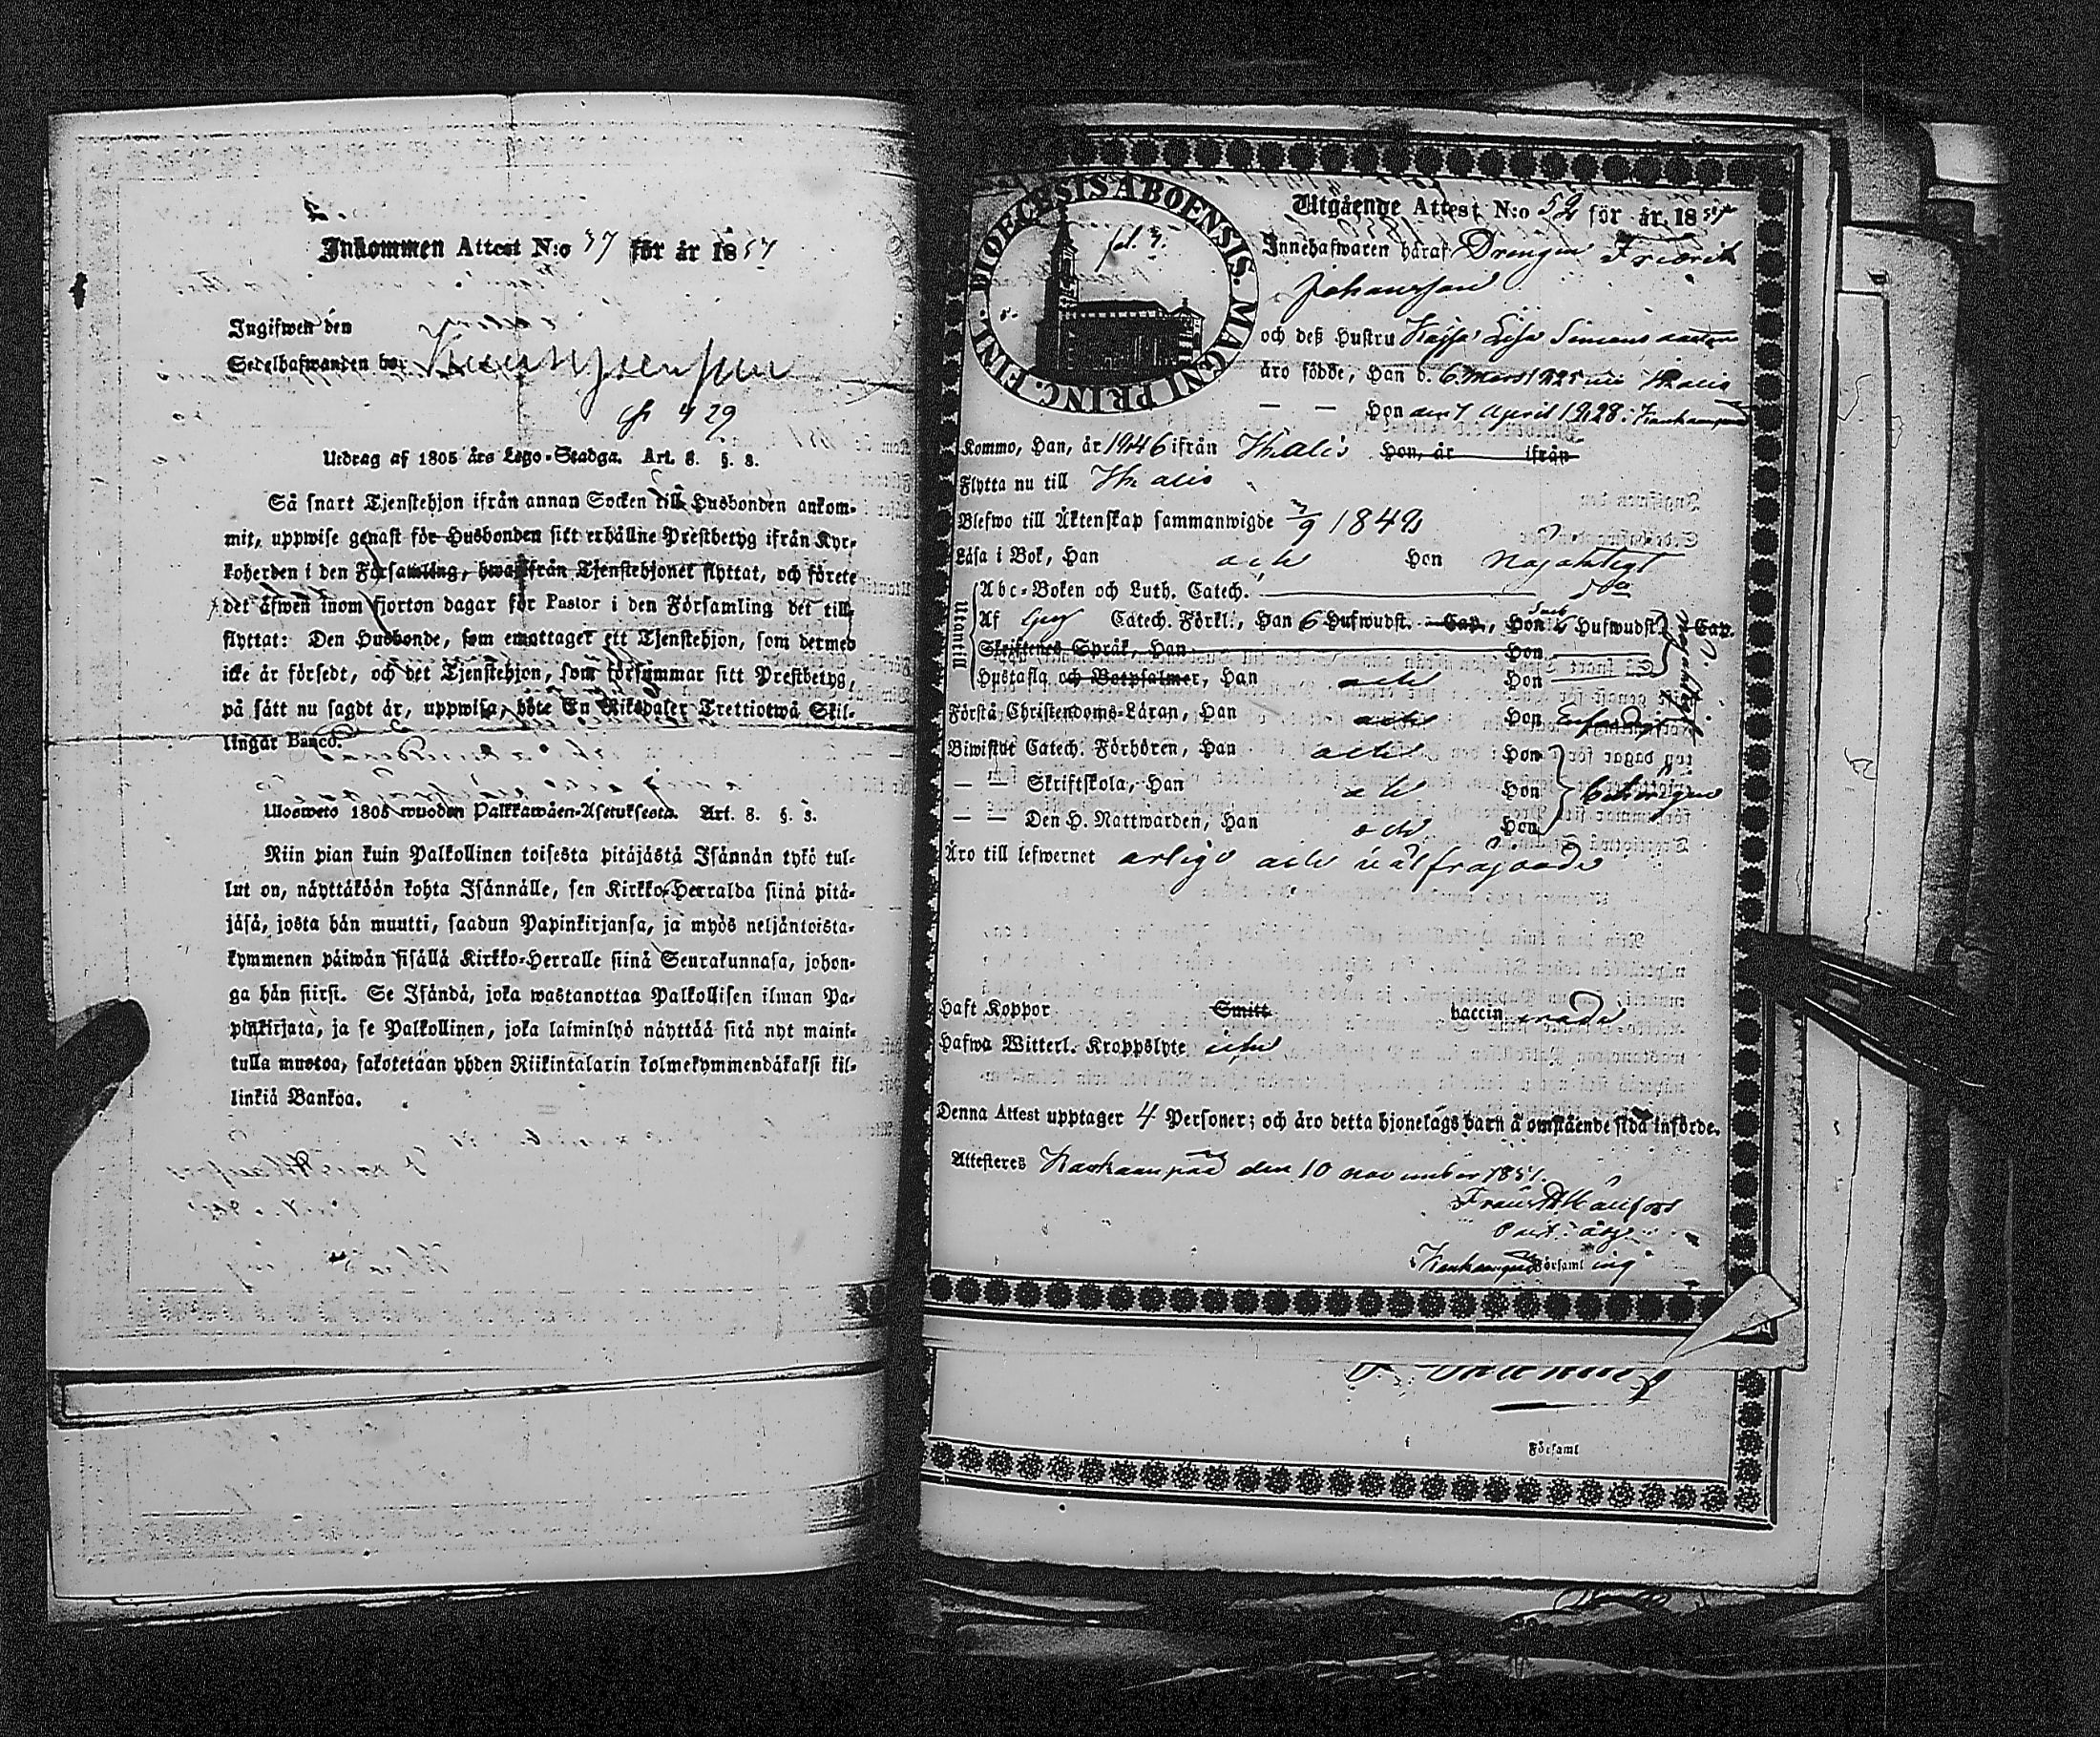 Inkommen Attest N:o 37 för år 1851
Ingifwen den
Sedelhafwanden bor
429
Utdrag af 1805 års Lego-Stadga. Art. 8. §. 3.
Så snart Tjenstehjon ifrån annan Socken till Husbonden ankom-
mit, uppwise genast för Husbonden sitt erhållne Prestbetyg ifrån Kyr-
koherden i den Församling, hwarifrån Tjenstehjonet flyttat, och förete
det äfwen inom fjorton dagar för Pastor i den Församling det till-
flyttat: Den Husbonde, som emottager ett Tjenstehjon, som dermed
icke är försedt, och det Tjenstehjon, som försummar sitt Prestbetyg,
på sätt nu sagdt är, uppwisa, böte En Riksdaler Trettiotwå Skil-
lingar Banco.
Ulosweto 1805 wuoden Palkkawäen-Asetuksesta. Art. 8. §. 3.
Niin pian kuin Palkollinen toisesta pitäjästä Isännän tykö tul-
lut on, näyttäköön kohta Isännälle, sen Kirkko-Herralda siinä pitä-
jäsä, josta hän muutti, saadun Papinkirjansa, ja myös neljäntoista-
kymmenen päiwän sisällä Kirkko-Herralle siinä Seurakunnasa, johon-
ga hän siirsi. Se Isändä, joka wastanottaa Palkollisen ilman Pa-
pinkirjata, ja se Palkollinen, joka laiminlyö näyttää sitä nyt maini-
tulla muotoa, sakotetaan yhden Riikintalarin kolmekymmendäkaksi kil-
linkiä Bankoa.
DIOECESIS ABOENSIS. MAGNI PRINC. FINL.
fol. 3.
Utgående Attest N:o 52 för år 1851
Innehafwaren häraf Drengen Fredrik
Johansson
och deß Hustru Kajsa Lisa Simonsdotter
äro födde, Han d. 6 Mars 1825 uti Ikalis
— — Hon den 7 April 1828 i Kankaanpää
Kommo, Han, år 1846 ifrån Ikalis Hon, år ifrån
Flytta nu till Ikalis
Blefwo till Äktenskap sammanwigde 7/9 1849
Läsa i Bok, Han och Hon någorlunda
Abc-Boken och Luth. Catech.
Utantill
Af Catech. Förkl., Han 6 Hufwudst. Cap., Hon Hufwudst. Cap.
Skriftenes Språk, Han Hon
Hustafla och Botpsalmer, Han och Hon
Första Christendoms-Läran, Han och Hon
Biwistat Catech. Förhören, Han och Hon
— — Skriftskola, Han och Hon
— — Den H. Nattwarden, Han och Hon
Äro till lefwernet ärlige och wälfrägdade
Haft Koppor Smitt. vaccinerade
Hafwa Witterl. Kroppslyte
Denna Attest upptager 4 Personer; och äro detta hjonelags barn å omstående sida införde.
Attesteres Kankaanpää den 10 november 1851.
Kankaanpää Församling
Församl